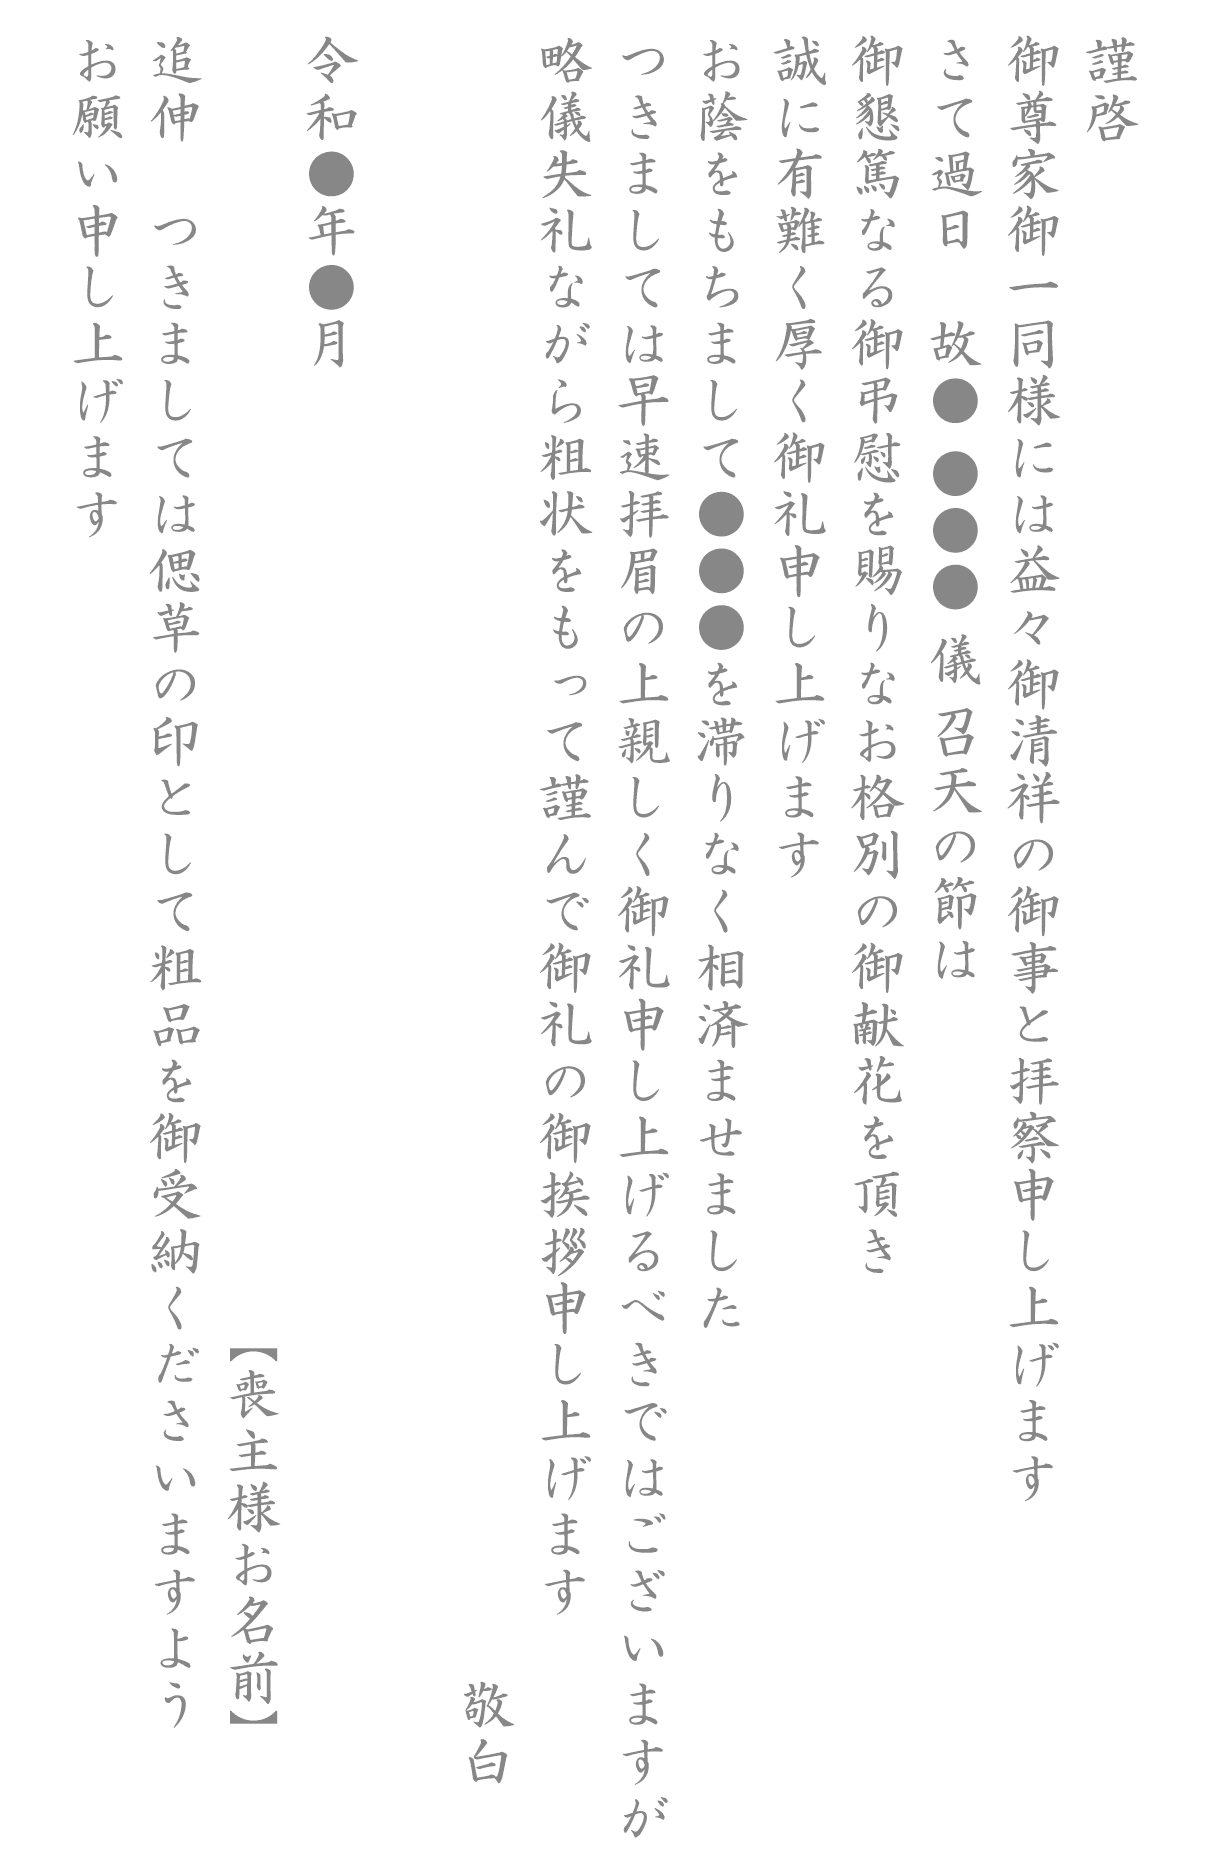 謹啓
御尊家御一同様には益々御清祥の御事と拝察申し上げます
さて過日　故●●●●儀召天の節は
御懇篤なる御弔慰を賜りなお格別の御献花を頂き
誠に有難く厚く御礼申し上げます
お蔭をもちまして●●●を滞りなく相済ませました
つきましては早速拝眉の上親しく御礼申し上げるべきではございますが
略儀失礼ながら粗状をもって謹んで御礼の御挨拶申し上げます
敬白
令和●年●月
【喪主様お名前】
追伸　つきましては偲草の印として粗品を御受納くださいますよう
お願い申し上げます